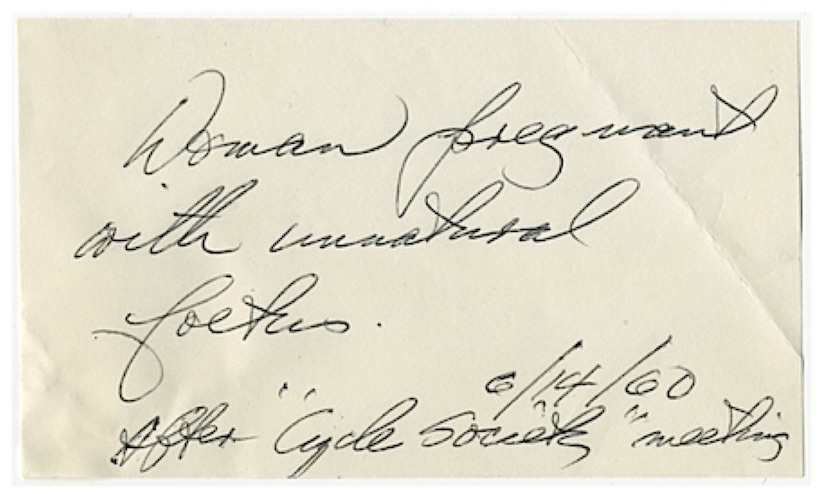 Woman pregnant
with unnatural
foetus.
6/14/60
After "Cycle Society" meeting